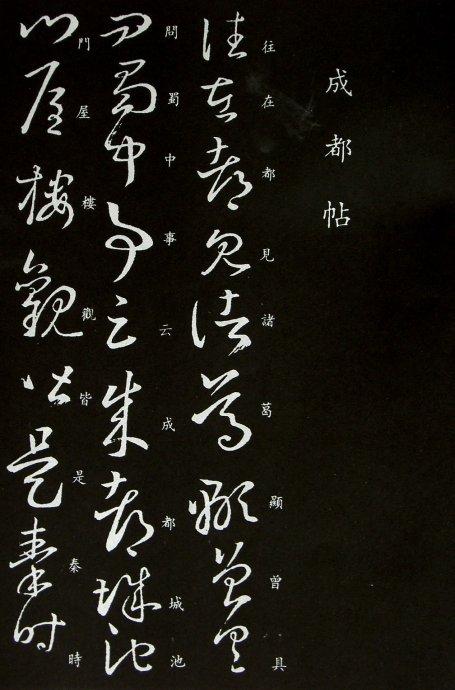 成都帖
往在都見諸葛顯曾具
問蜀中事云成都城池
門屋樓觀皆是秦時